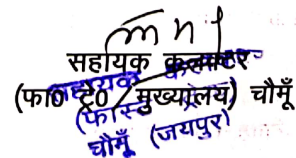 सहायक कलक्टर
(फा० ट्रे० मुख्यालय) चौमूँ
सहायक
(फास्ट
चौमूँ (जयपुर)